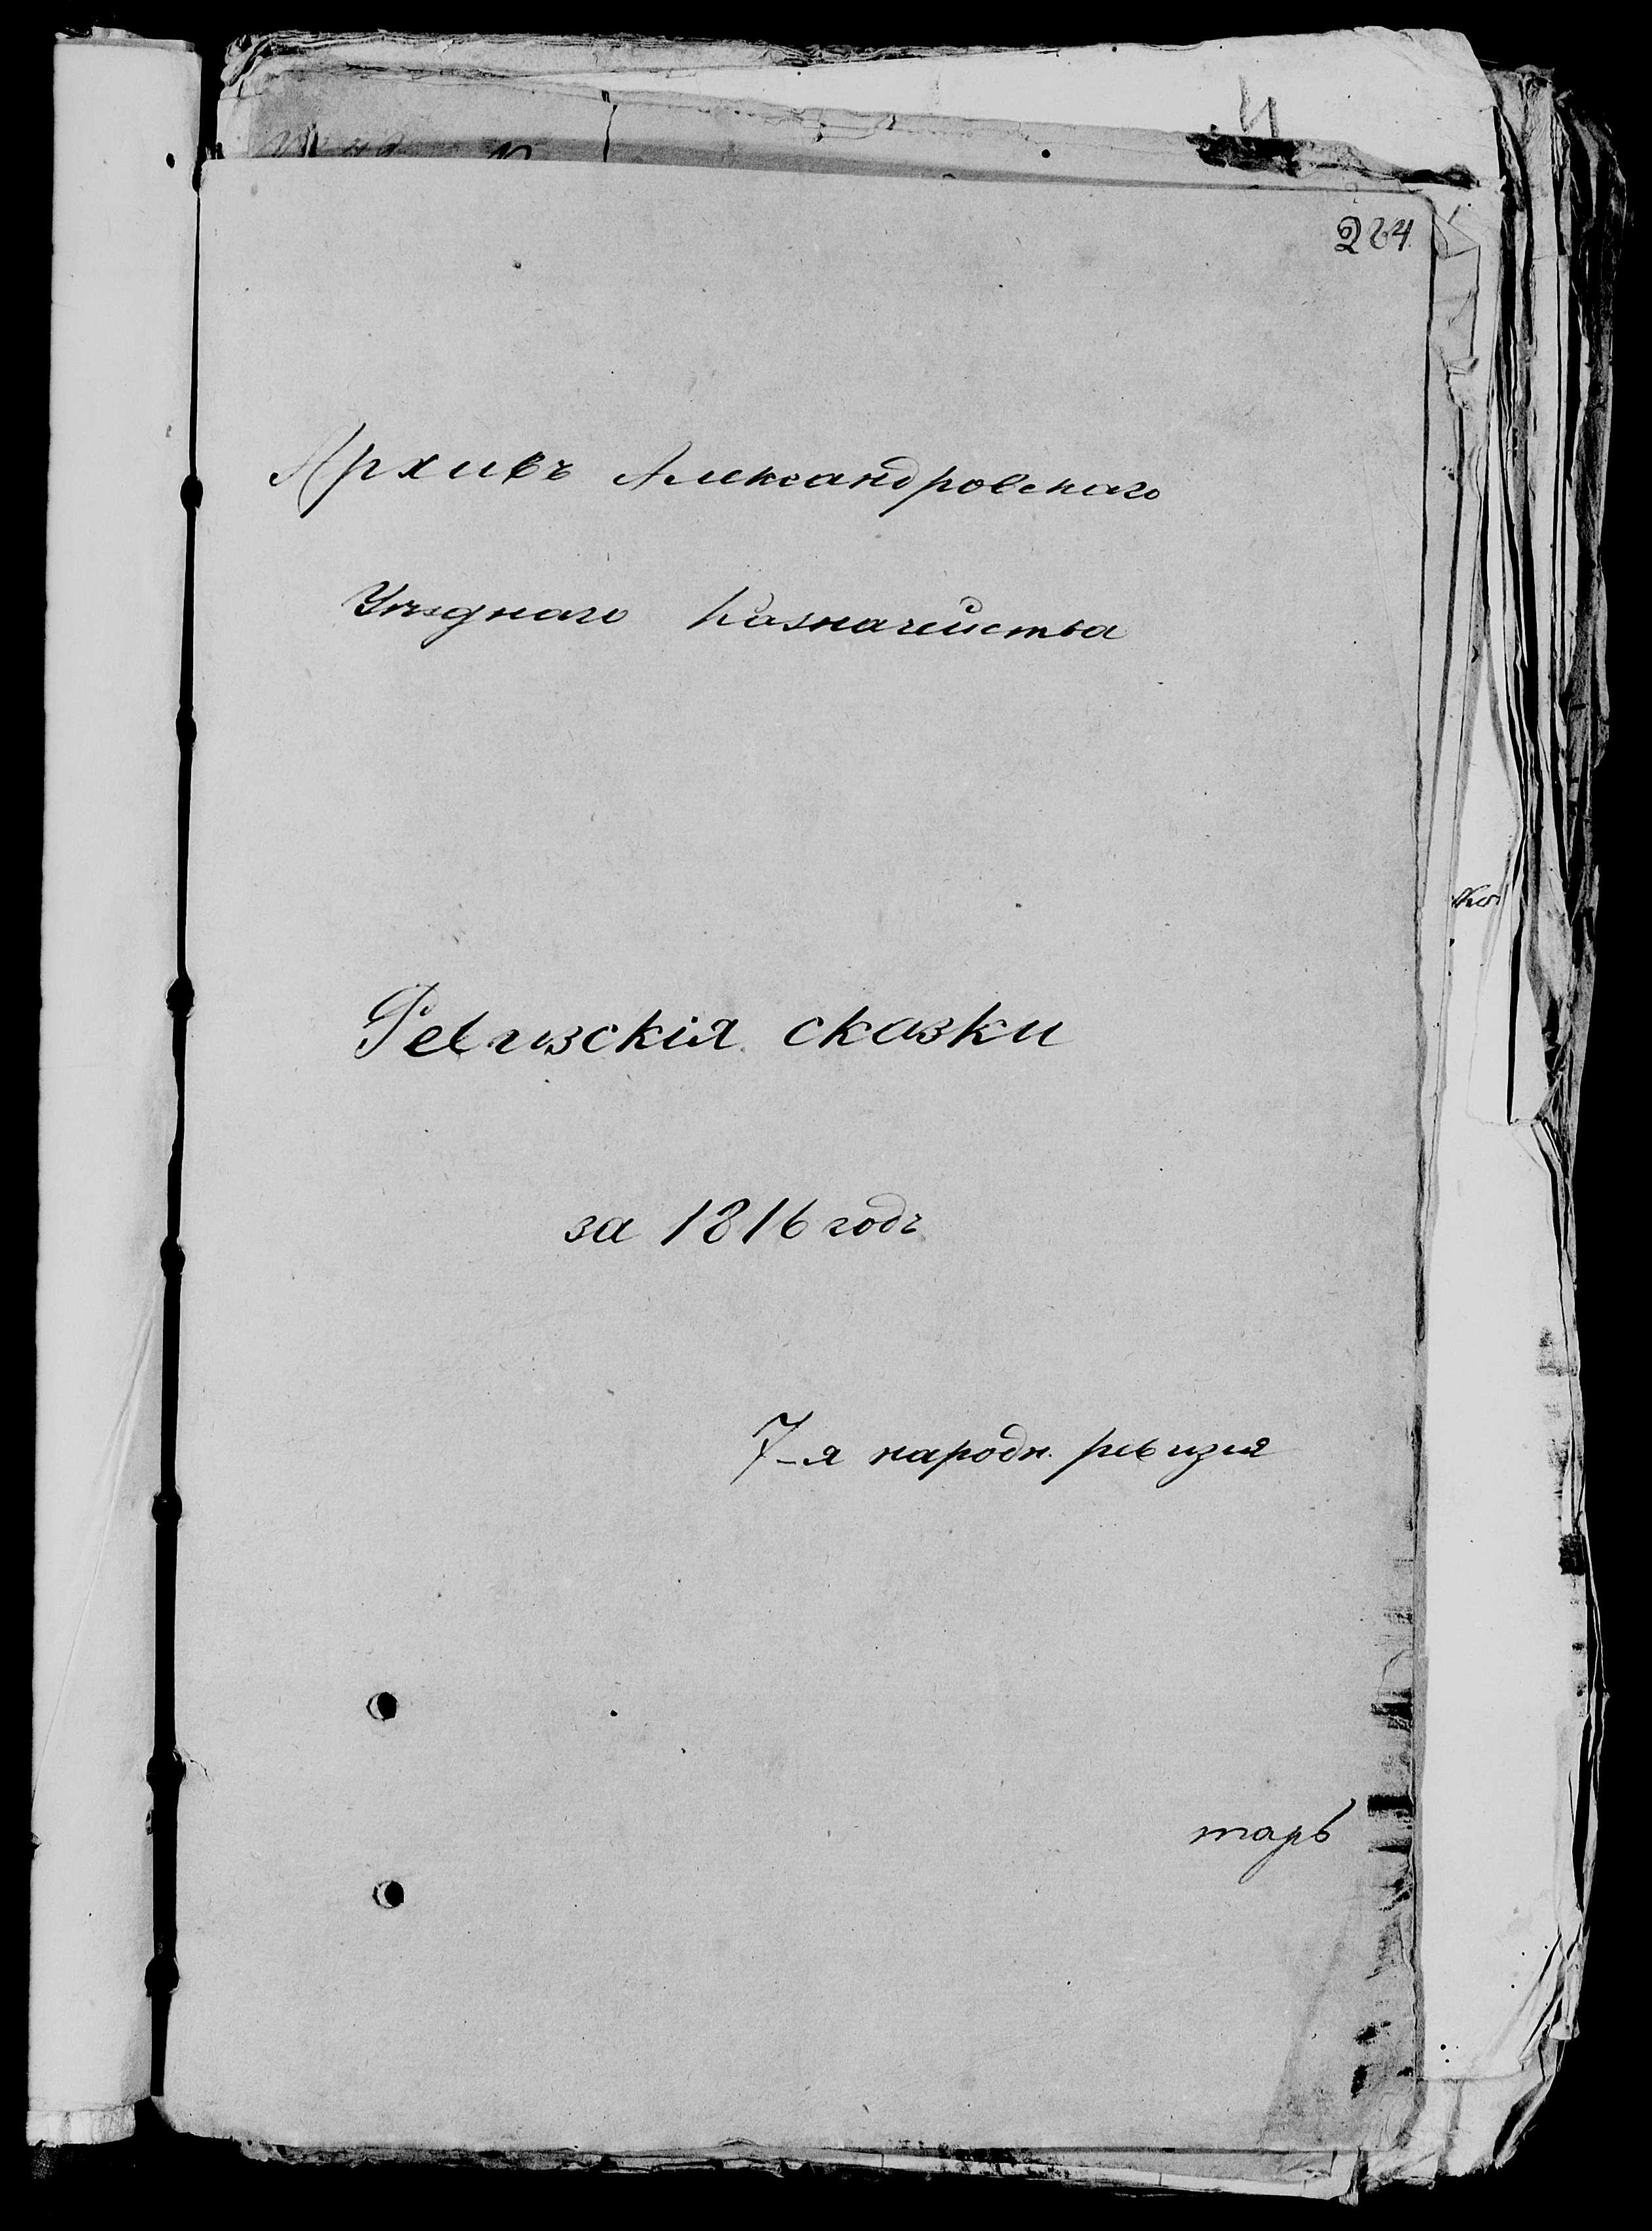 284
Архивъ Александровскаго
Уѣзднаго Казначейства
Ревизскія сказки
за 1816 годъ
7-я народн. ревизия
тарь